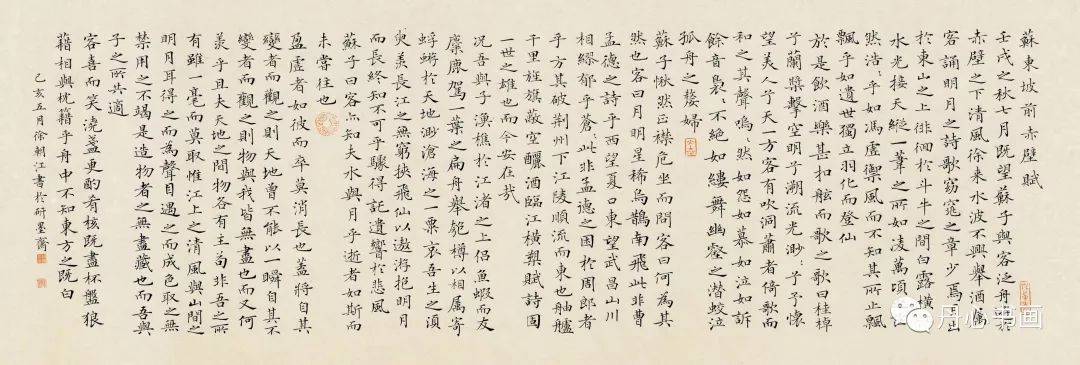 蘇東坡前赤壁賦
壬戌之秋七月既望蘇子與客泛舟於
赤壁之下清風徐来水波不興舉酒屬
客誦明月之詩歌窈窕之章少焉月出
於東山之上徘徊於斗牛之間白露橫
水光接天縱一葦之所如凌萬頃
然浩:乎如馮虛禦風而不知其所止飄
飄乎如遺世獨立羽化而登仙
於是飲酒樂甚扣舷而歌之歌曰桂棹
兮蘭槳擊空明兮溯流光渺:兮予懷
望美人兮天一方客有吹洞簫者倚歌而
和之其聲嗚:然如怨如慕如泣如訴
餘音裊:不絕如縷舞幽壑之潛蛟泣
孤舟之嫠婦
蘇子愀然正襟危坐而問客曰何為其
然也客曰月明星稀烏鵲南飛此非曹
孟德之詩乎西望夏口東望武昌山川
相繆郁乎蒼:此非孟德之困於周郎者
乎方其破荆州下江陵順流而東也舳艫
千里旌旗蔽空釃酒臨江橫槊賦詩固
一世之雄也而今安在哉
況吾與子漁樵於江渚之上侶魚蝦而友
麋鹿駕一葉之扁舟舉匏樽以相屬寄
蜉蝣於天地渺滄海之一粟哀吾生之須
臾羨長江之無窮挾飛仙以遨游抱明月
而長終知不可乎驟得託遺響於悲風
蘇子曰客亦知夫水與月乎逝者如斯而
未嘗往也
盈虛者如彼而卒莫消長也蓋將自其
變者而觀之則天地曾不能以一瞬自其不
變者而觀之則物與我皆無盡也而又何
羨乎且夫天地之間物各有主苟非吾之所
有雖一毫而莫取惟江上之清風與山間之
明月耳得之而為聲目遇之而成色取之無
禁用之不竭是造物者之無盡藏也而吾與
子之所共適
客喜而笑洗盞更酌肴核既盡杯盤狼
藉相與枕藉乎舟中不知東方之既白
乙亥五月徐朝江書於研墨齋
丹心书画